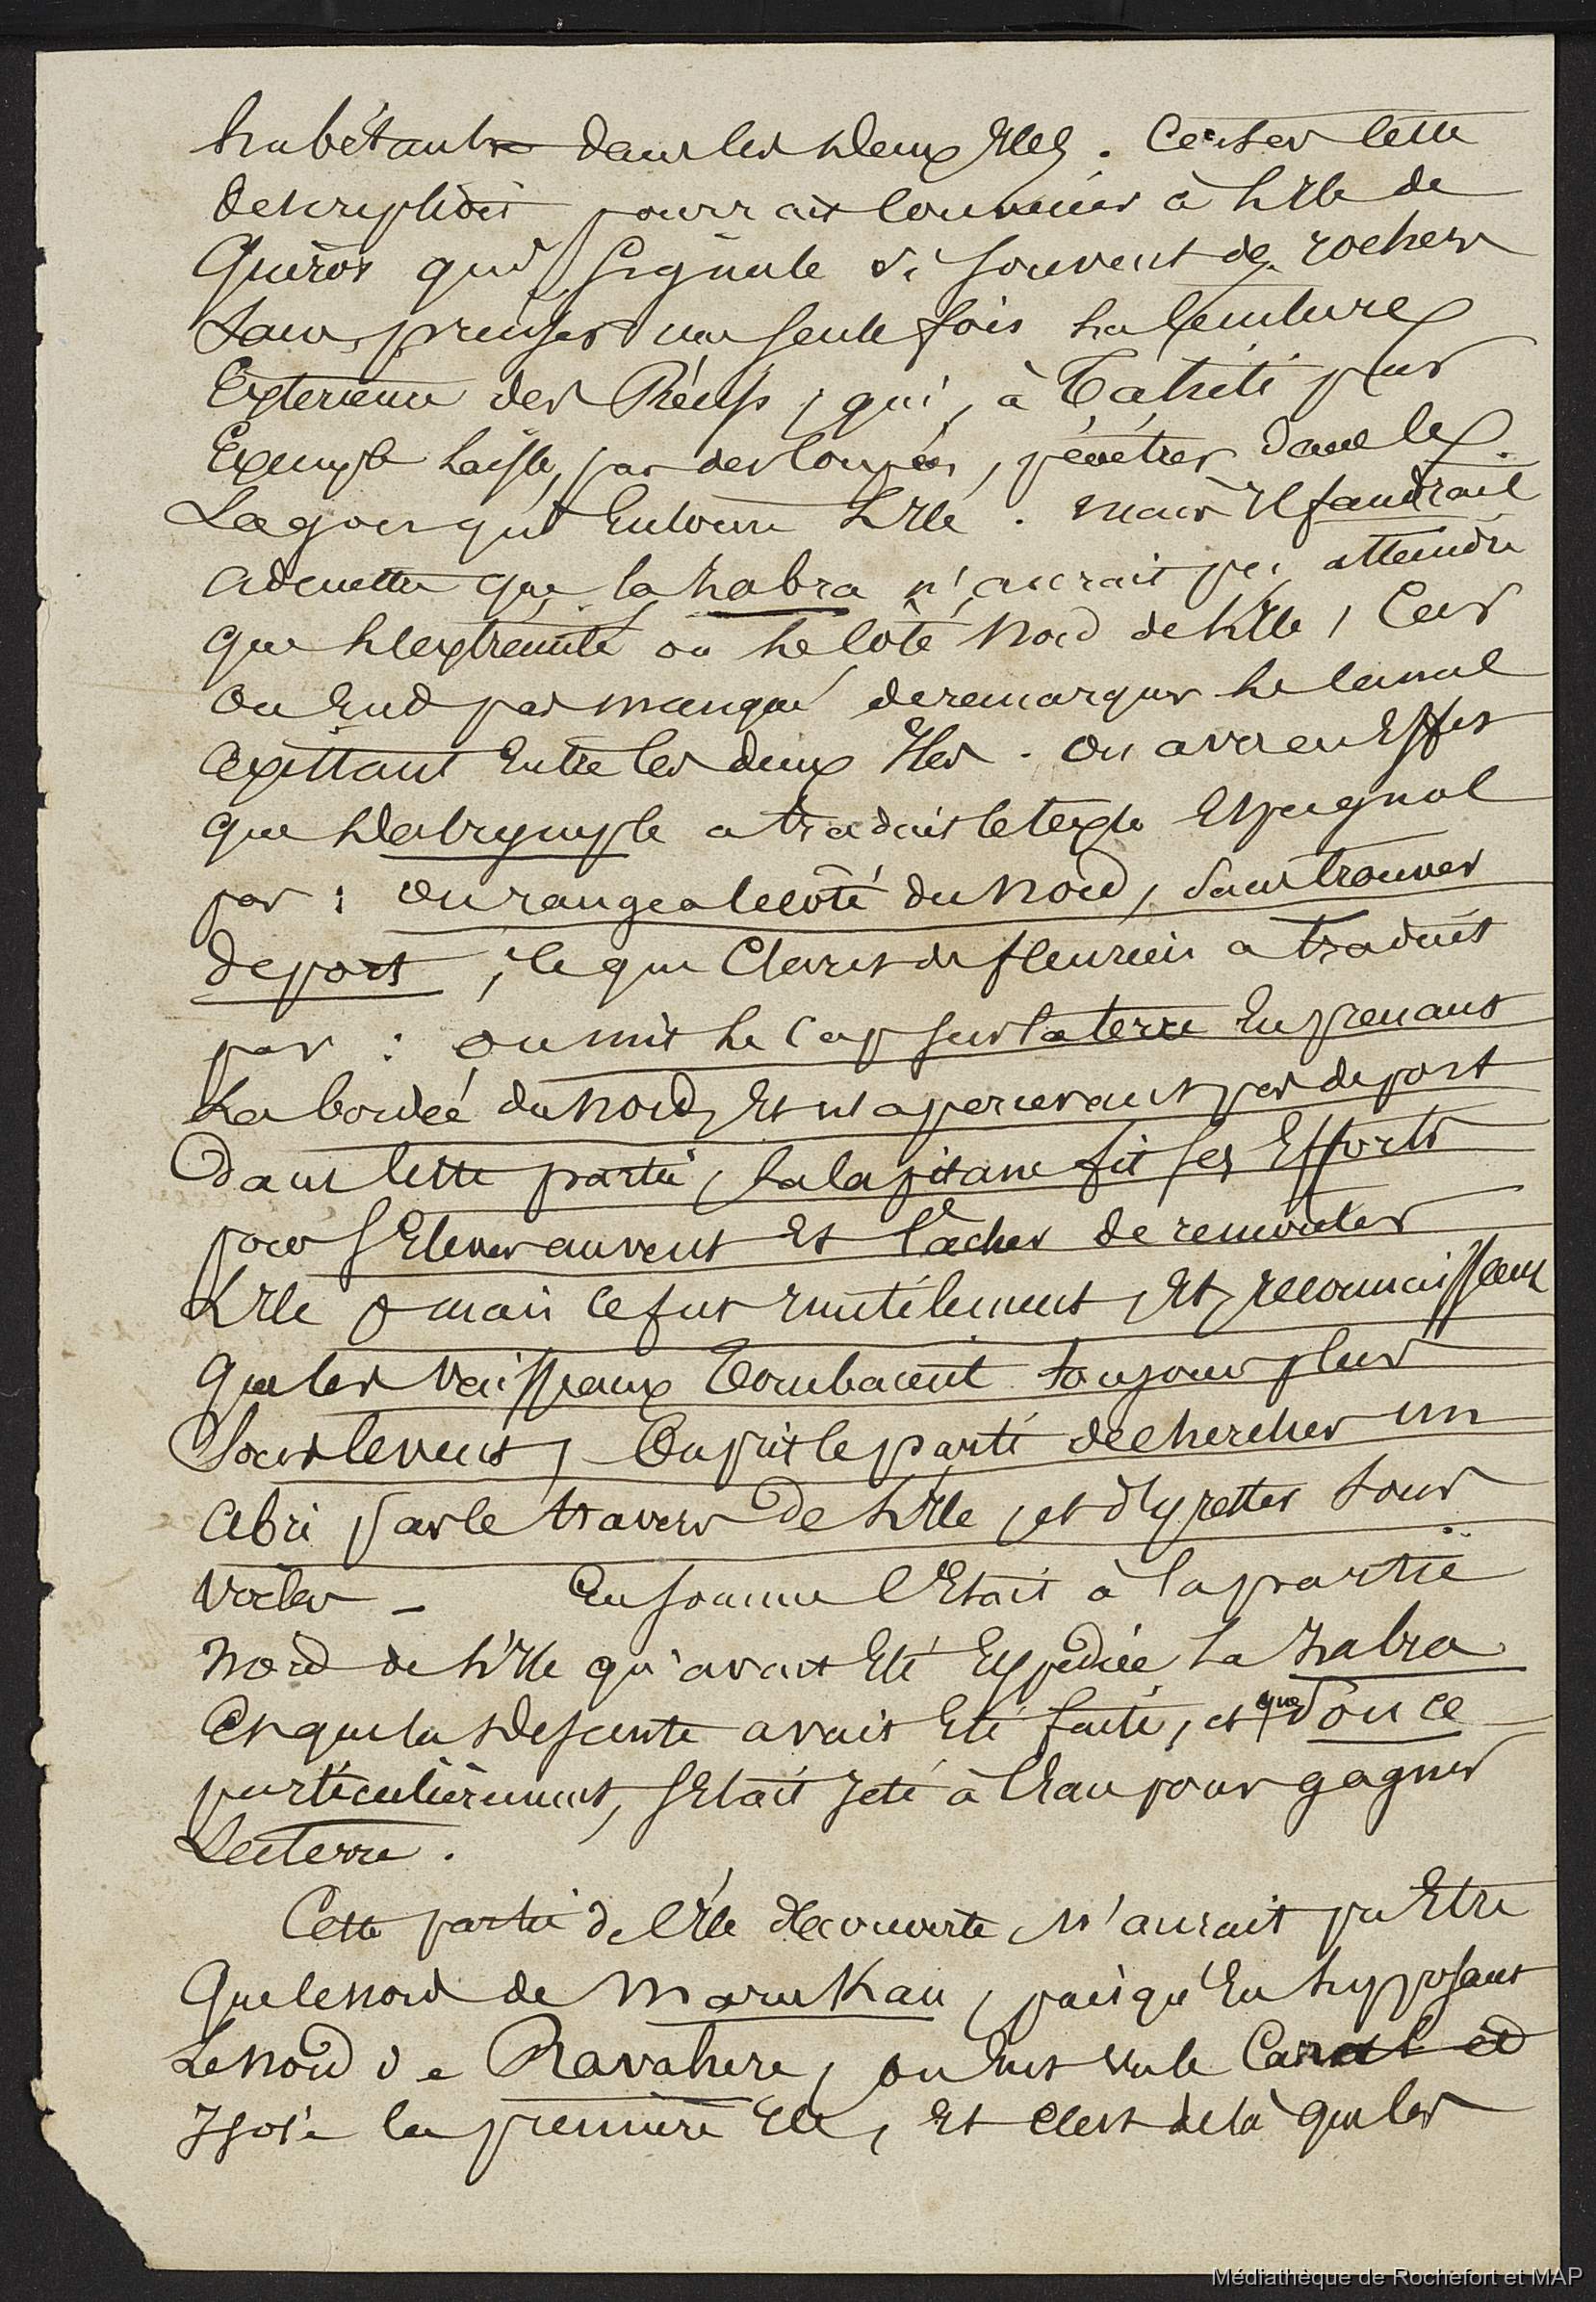 habitants dans les deux Iles. Certes cette
description pourrait convenir à l'Ile de
Quiros qui signale si souvent des rochers
sans préciser une seule fois la ceinture
Exterieure des Récifs, qui, à Tahiti par
Exemple laisse, par des coupées, pénétrer dans le
Lagon qui Entoure l'Ile. Mais Il faudrait
admettre que la Zabra n'aurait pu atteindre
que l'extremité ou le côté Nord de l'Ile, Car
on Eut pas manqué de remarquer le canal
existant Entre les deux Iles. On a vu en Effet
que Dalrymple a traduit le texte Espagnol
par : on rangea le côté du Nord, sans trouver
de port ; ce que Claret de fleurieu a traduit
par : on mit le Cap sur la terre En prenant
La bordée du Nord, Et n'apercevant pas de port
dans cette partie, la Capitane fit ses Efforts
pour s'Elever au vent Et tâcher de remonter
L'Ile ; mais ce fut Inutilement, Et, reconnaissant
que les vaisseaux tombaient toujours plus
sous le vent, On prit le parti de chercher un
abri par le travers de l'Ile, et d'y rester sous
voiles - En somme c'Etait à la partie
Nord de l'Ile qu'avait Eté Expédiée la Zabra
Et que la descente avait Eté faite, et que Ponce
particulièrement, s'Etait jeté à l'Eau pour gagner
La terre.
Cette partie de l'Ile découverte, n'aurait pu Etre
Que le nord de Marukau, puisqu'En supposant
Le Nord de Ravahere, on Eut vu le Canal et
Isolé la première Ile, Et c'Est de là que les
Médiathèque de Rochefort et MAP